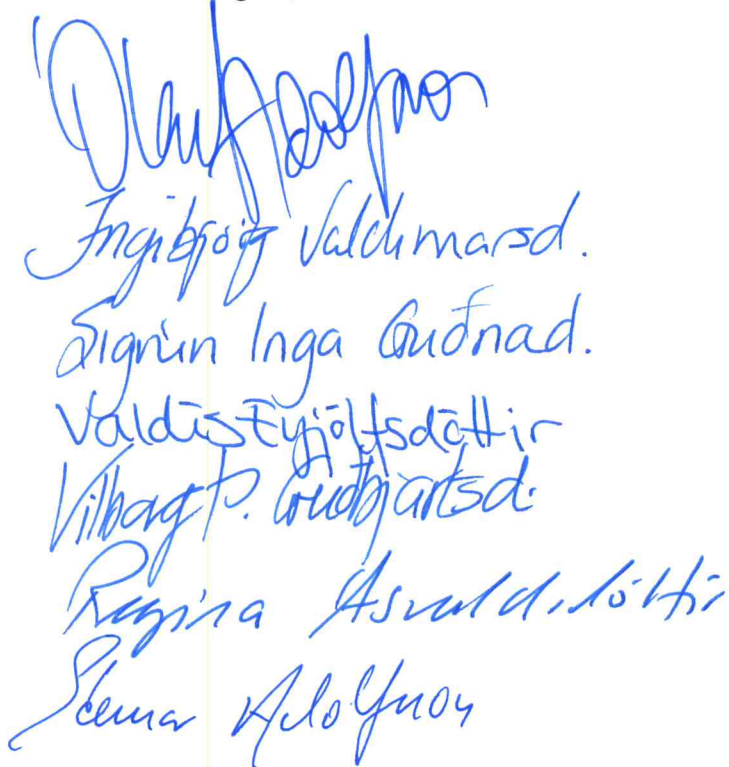 Ólafur Adolfsson
Ingibjörg Valdimarsd.
Sigrún Inga Guðnad.
Valdís Eyjólfsdóttir
Vilborg Þ. Guðbjartsd.
Regína Ásvaldsdóttir
Steinar Adolfsson